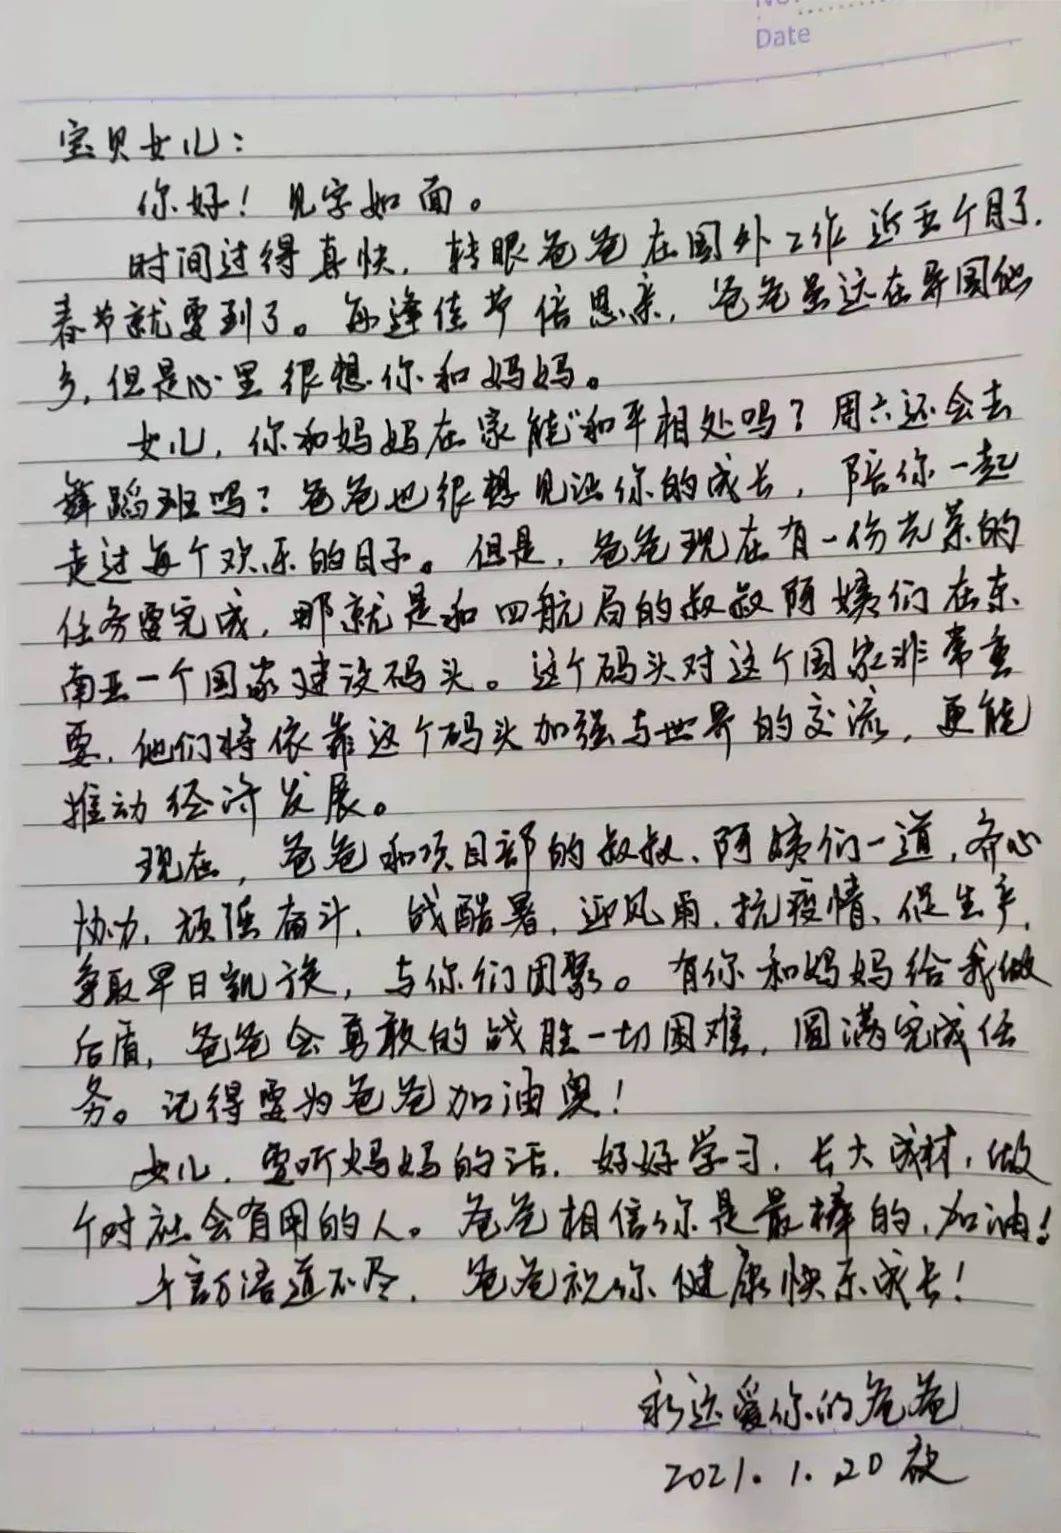 Date
宝贝女儿：
你好！见字如面。
时间过得真快，转眼爸爸在国外工作近五个月了，
春节就要到了。每逢佳节倍思亲，爸爸虽远在异国他
乡，但是心里很想你和妈妈。
女儿，你和妈妈在家能“和平相处吗？周六还会去
舞蹈班吗？爸爸也很想见证你的成长，陪你一起
走过每个欢乐的日子。但是，爸爸现在有一份光荣的
任务要完成，那就是和四航局的叔叔阿姨们在东
南亚一个国家建设码头。这个码头对这个国家非常重
要，他们将依靠这个码头加强与世界的交流，更能
推动经济发展。
现在，爸爸和项目部的叔叔、阿姨们一道，齐心
协力，顽强奋斗，战酷暑，迎风雨，抗疫情、促生产，
争取早日凯旋，与你们团聚。有你和妈妈给我做
后盾，爸爸会勇敢的战胜一切困难，圆满完成任
务。记得要为爸爸加油奥！
女儿，要听妈妈的话，好好学习，长大成材，做
个对社会有用的人。爸爸相信你是最棒的，加油！
千言万语道不尽，爸爸祝你健康快乐成长！
永远爱你的爸爸
2021.1.20夜